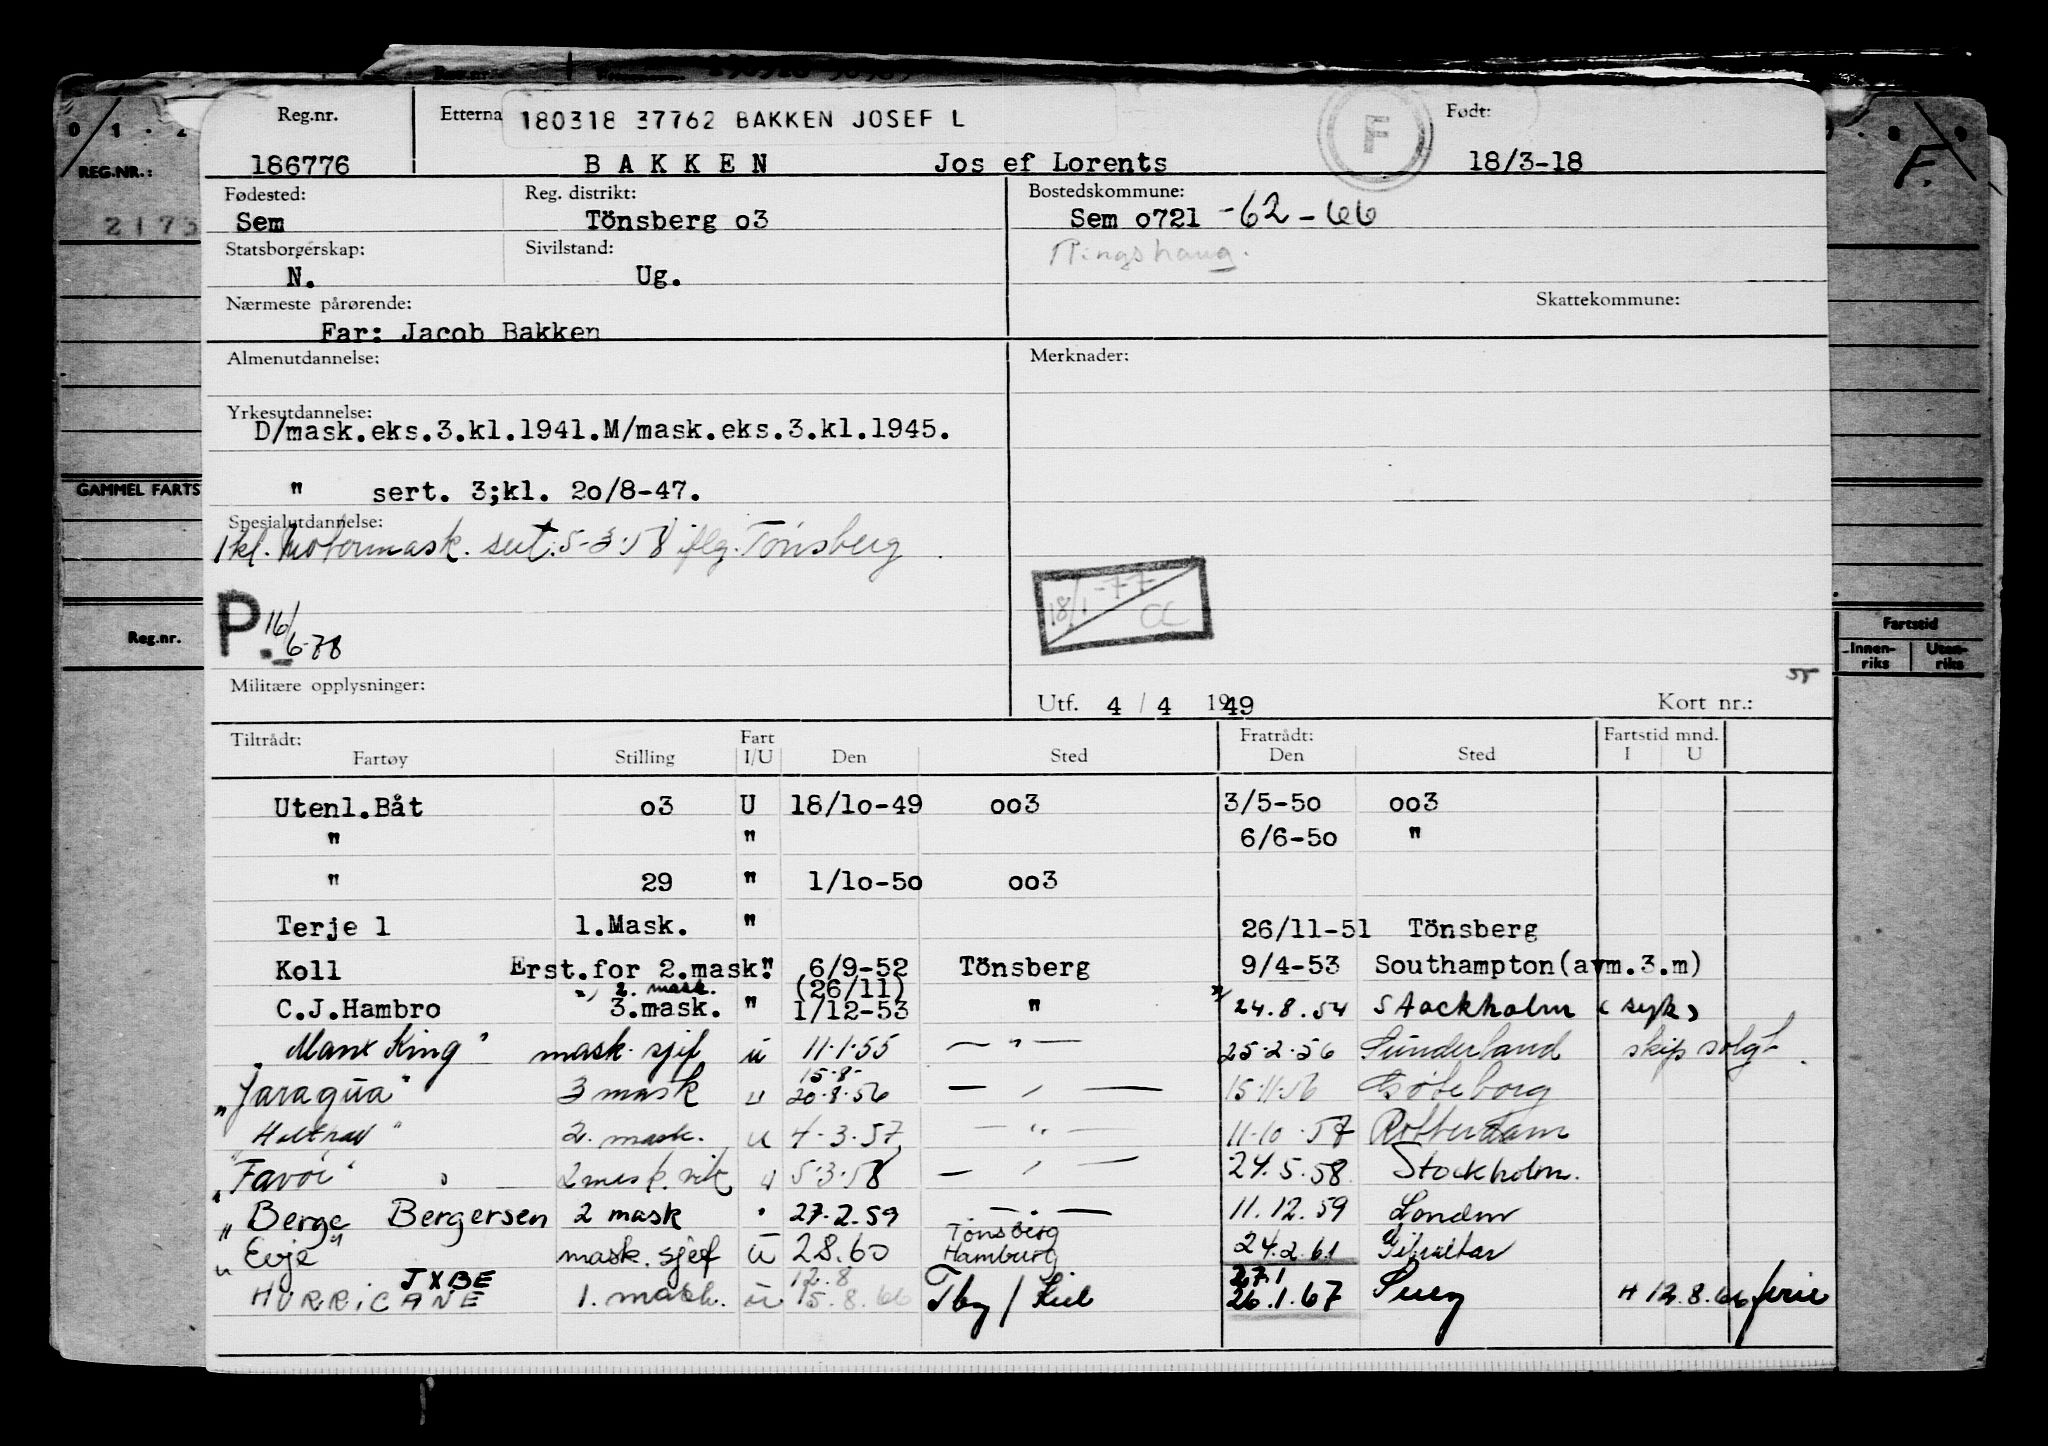 Reg.nr. Etterna 180318 37762 BAKKEN JOSEF L F Født:
186776 B A K K E N Jos ef Lorents 18/3-18
REG.NR.:
F.
Fødested: Reg. distrikt: Bostedskommune:
Sem Tönsberg o3 Sem o721 -62-66
Ringshaug.
Statsborgerskap: Sivilstand:
N. Ug.
Nærmeste pårørende: Skattekommune:
Far: Jacob Bakken
Almenutdannelse: Merknader:
Yrkesutdannelse:
D/mask.eks.3.kl.1941.M/mask.eks.3.kl.1945.
GAMMEL FARTS
" sert. 3;kl. 2o/8-47.
Spesialutdannelse:
1 kl. Motormask. sert. 5-3-58 iflg. Tønsberg
18/1-77
P. 16/6-78
Reg.nr. Fartstid
Innen-riks Uten-riks
Militære opplysninger:
Utf. 4 / 4 1949 Kort nr.:
Tiltrådt: Fart Fratrådt: Fartstid mnd.
Fartøy Stilling I/U Den Sted Den Sted I U
Utenl.Båt o3 U 18/1o-49 oo3 3/5-5o oo3
" " 6/6-5o "
" 29 " 1/1o-5o oo3
Terje 1 1.Mask. " 26/11-51 Tönsberg
Koll Erst.for 2.mask." 6/9-52 Tönsberg 9/4-53 Southampton(avm.3.m)
2. mask. (26/11)
C.J.Hambro 3.mask. " 1/12-53 " 24.8.54 Stockholm (syk)
"Manx King" mask. sjef u 11.1.55 — " — 25.2.56 Sunderland skip solgt
15.8-
"Jaragua" 3 mask u 20.8.56 — " — 15.11.56 Gøteborg
"Holtrad" 2. mask. u 4.3.57 — " — 11.10.57 Rotterdam
"Favor" 2 mask. vik u 5.3.58 — " — 24.5.58 Stockholm.
"Berge Bergersen 2 mask " 27.2.59 — " — 11.12.59 London
Tönsberg
"Evje" mask. sjef u 2.8.60 Hamburg 24.2.61 Gibraltar
JXBE 12.8 27.1
HURRICANE 1. mask. u 15.8.66 Tbg / Kiel 26.1.67 Suez H 12.8.66 ferie